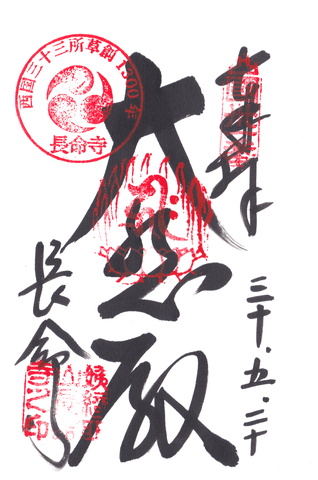 奉拝
三十.五.二十
西国三十三所草創1300年
長命寺
大悲殿
長命寺